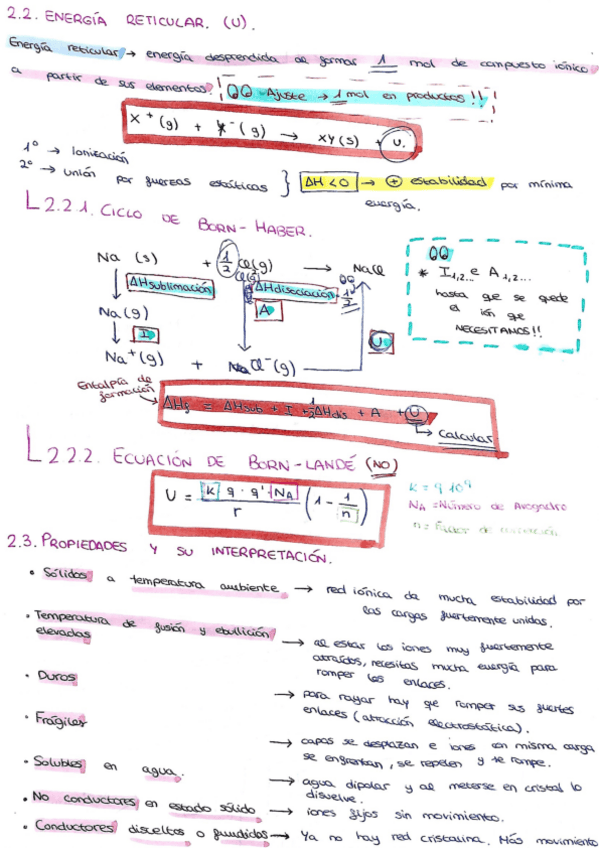 2.2. ENERGÍA RETICULAR. (U).
Energía reticular → energía desprendida al formar 1 mol de compuesto iónico
a partir de sus elementos
Ajuste → 1 mol en productos!!
X⁺(g) + Y⁻(g) → XY(s) + U.
1º → Ionización
2º → unión por fuerzas estáticas } ΔH<0 → ⊕ estabilidad por mínima
energía.
2.2.1. CICLO DE BORN-HABER.
Na (s) + 1/2 Cl₂(g) → NaCl
ΔHsublimación
Cl(g)
ΔHdisociación
1/2
Na(g)
A
I
U
Na⁺(g) + Cl⁻(g)
* I₁,₂... e A₁,₂...
hasta que se quede
el ión que
NECESITAMOS!!
Entalpía de
formación
ΔHf = ΔHsub + I + 1/2 ΔHdis + A + U
→ calcular
2.2.2. ECUACIÓN DE BORN-LANDÉ (NO)
U = K q · q' · NA / r (1 - 1/n)
K = 9·10⁹
NA = Número de Avogadro
n = Factor de
2.3. PROPIEDADES Y SU INTERPRETACIÓN.
• Sólidos a temperatura ambiente → red iónica da mucha estabilidad por
las cargas fuertemente unidas.
• Temperatura de fusión y ebullición
elevadas → al estar los iones muy fuertemente
atraídos, necesitas mucha energía para
romper los enlaces.
• Duros → para rayar hay que romper sus fuertes
enlaces (atracción electrostática).
• Frágiles → capas se desplazan e iones con misma carga
se engrentan, se repelen y se rompe.
• Solubles en agua. → agua dipolar y al meterse en cristal lo
disuelve.
• No conductores en estado sólido → iones fijos sin movimiento.
• Conductores disueltos o fundidos → Ya no hay red cristalina. Más movimiento